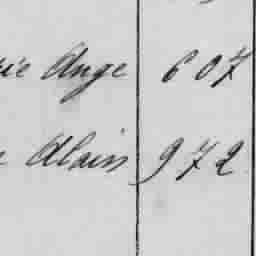 rie Ange 607
Alain 972